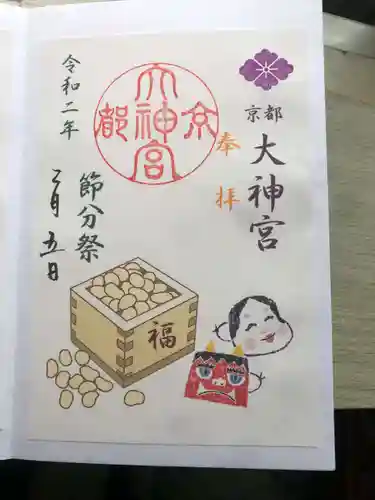 奉拝
京都
大神宮
京都
大神宮
節分祭
令和二年
二月五日
福